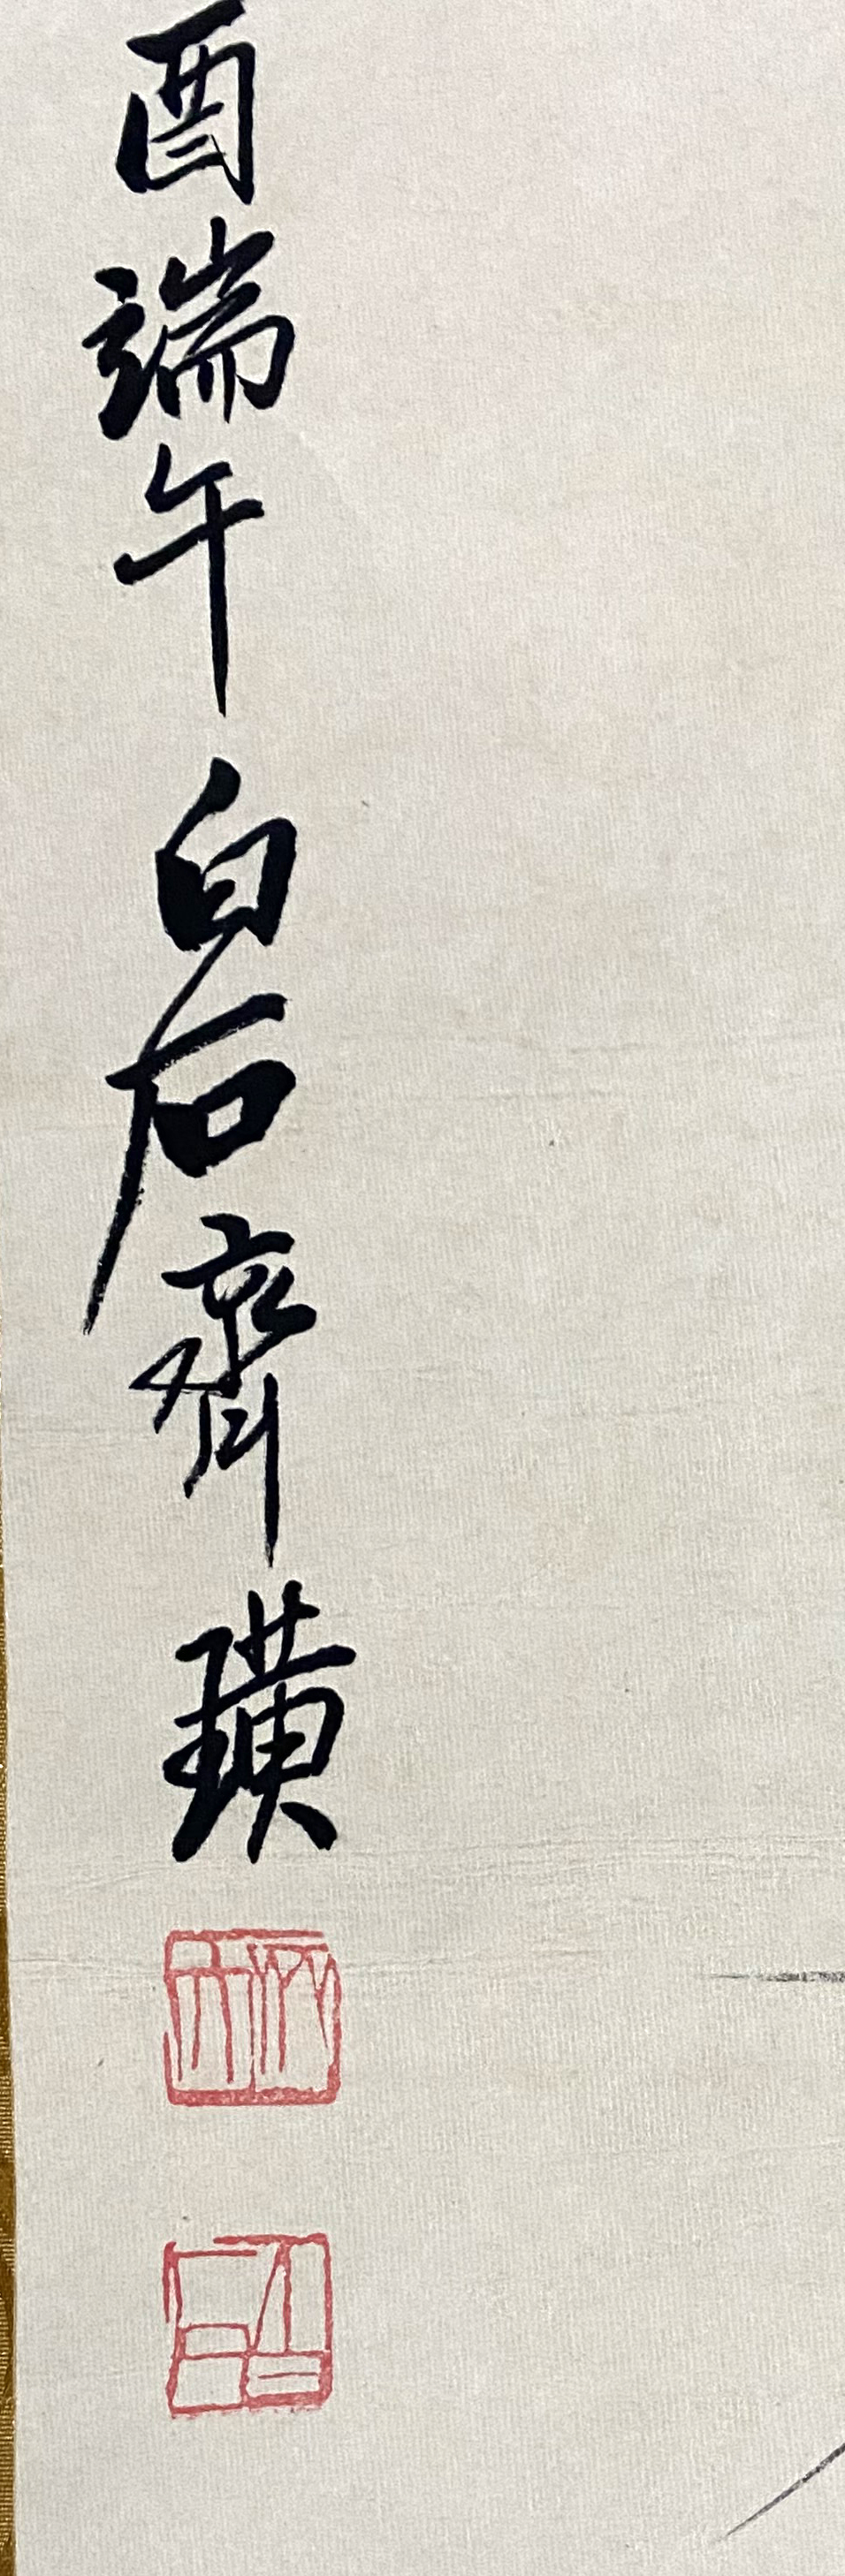 酉端午白石齊璜